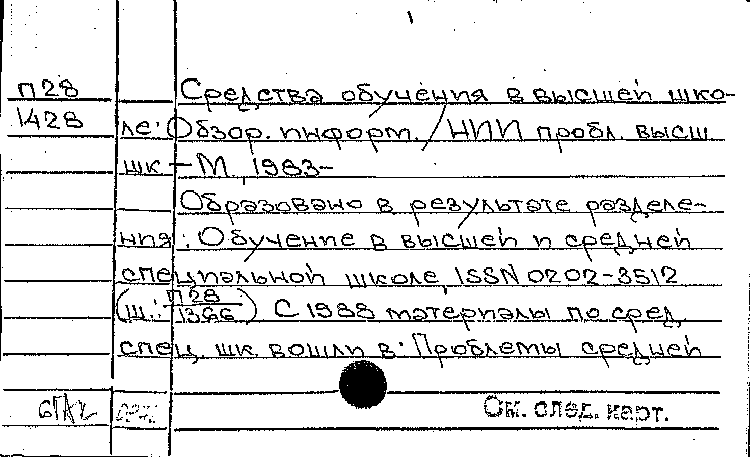 П28 Средства обучения в высшей шко-
1428 ле: Обзор. информ. / НИИ пробл. высш.
шк. – М., 1983–
Образовано в результате разделе-
ния: Обучение в высшей и средней
специальной школе, ISSN 0202-3512
(ш.: П28/1366) С 1988 материалы по сред.
спец. шк. вошли в: Проблемы средней
См. след. карт.